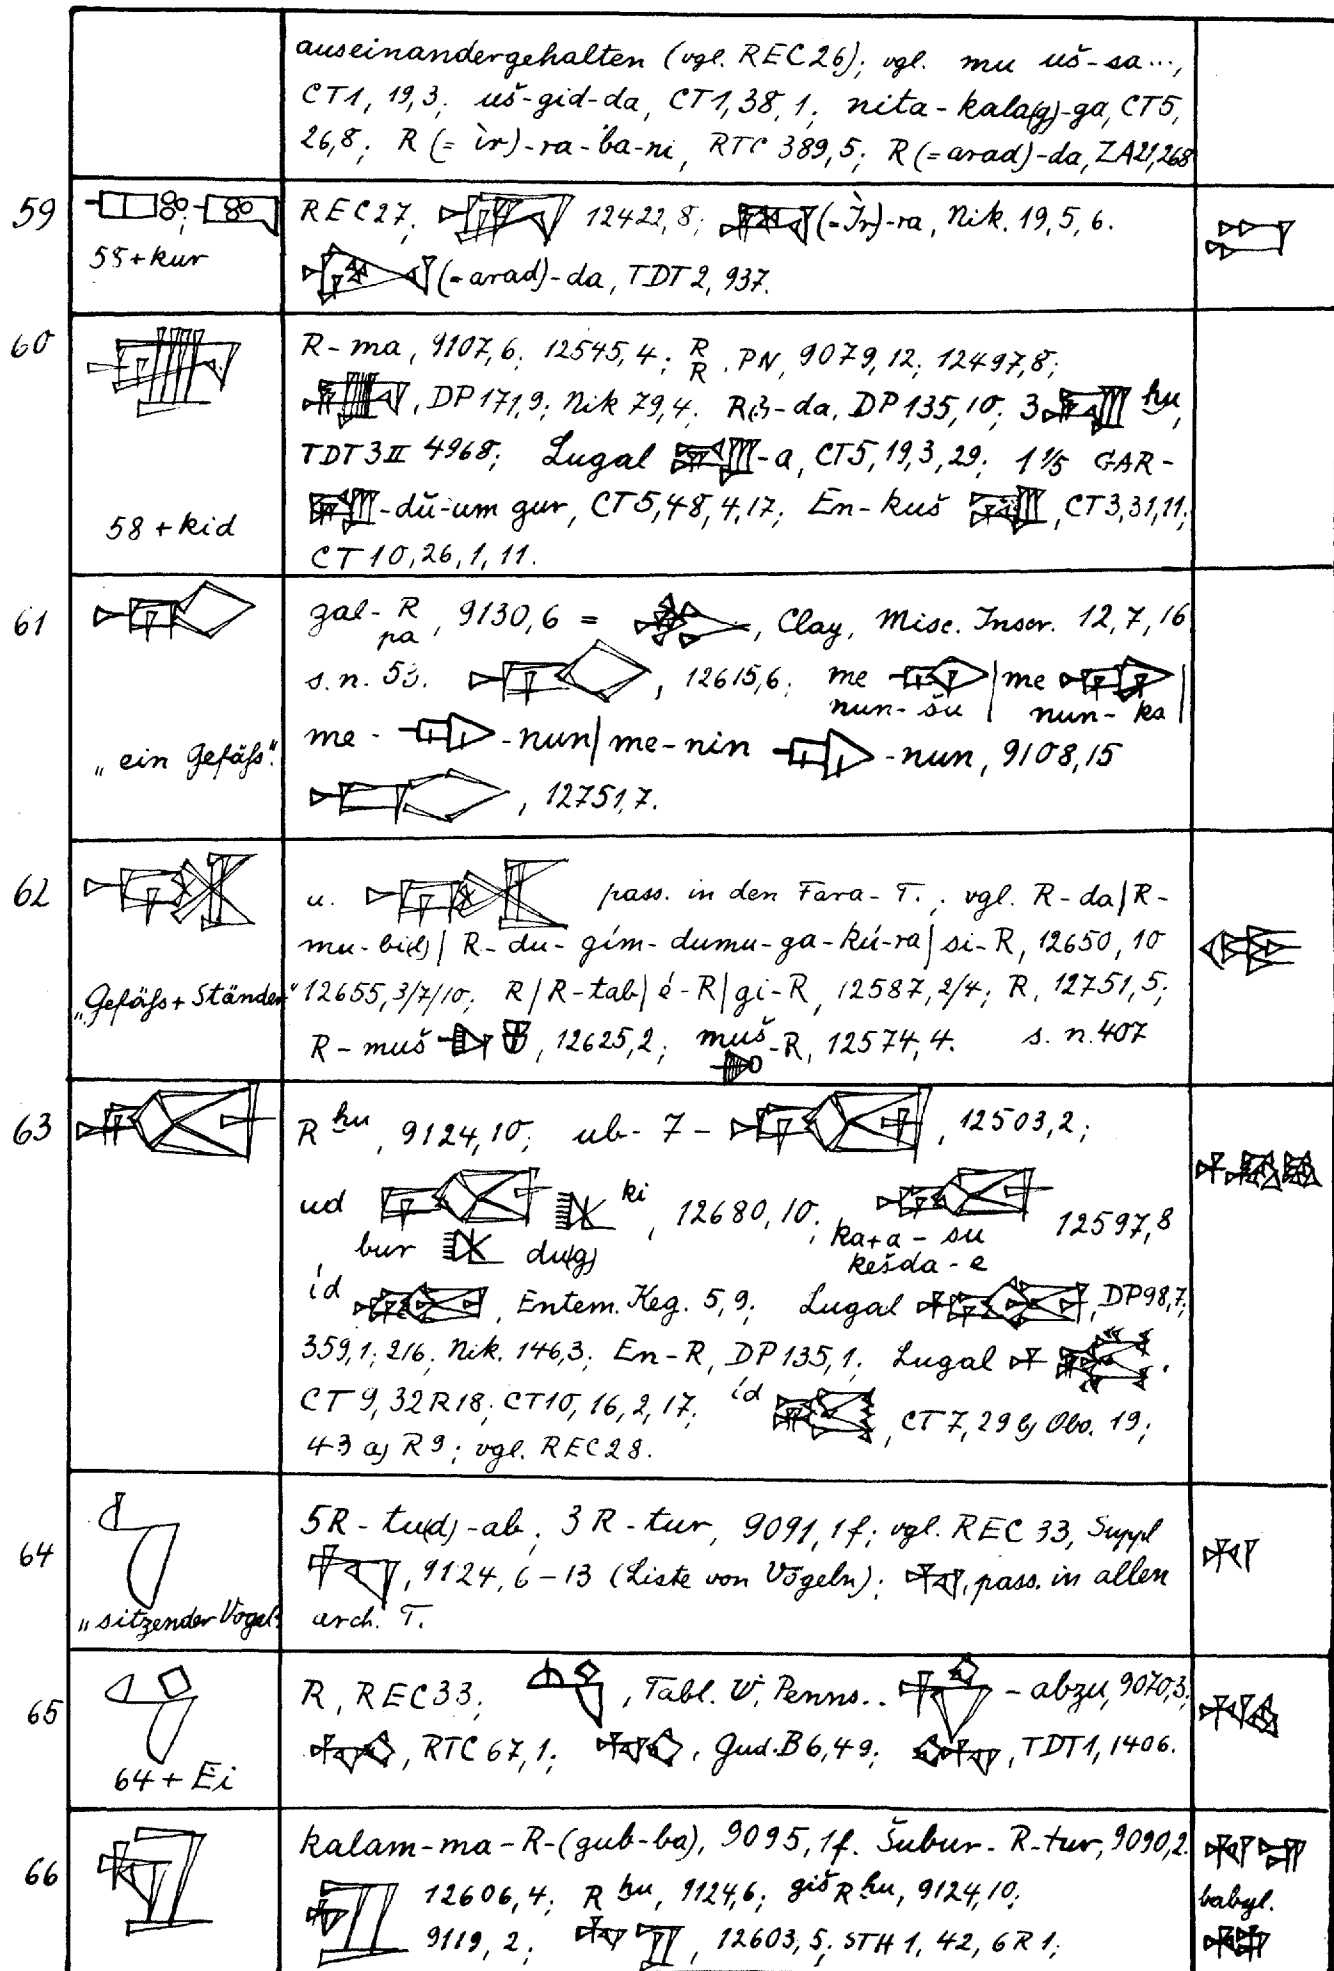 auseinandergehalten (vgl. REC 26); vgl. mu uš-sa...,
CT1, 19,3; uš-gid-da, CT1,38,1; nita-kala(g)-ga, CT5,
26,8; R (= ìr)-ra-ba-ni, RTC 389,5; R (=arad)-da, ZA21,268
59
58+kur
REC27; 12422,8; (=Ìr)-ra, Nik. 19,5,6.
(=arad)-da, TDT 2, 937.
60
58 + kid
R-ma, 9107,6; 12545,4; R R, PN, 9079,12; 12497,8;
, DP 171,9; Nik 79,4; Rß-da, DP 135,10; 3 hu,
TDT 3 II 4968; Lugal -a, CT5,19,3,29; 1 1/5 GAR-
-dŭ-um gur, CT5,48,4,17; En-kuš , CT3,31,11;
CT 10,26,1,11.
61
„ein Gefäß“
gal-R pa, 9130,6 = , Clay, Misc. Inscr. 12,7,16
s. n. 53. , 12615,6; me nun-šu | me nun-ka |
me- -nun | me-nin -nun, 9108,15
, 12751,7.
62
„Gefäß + Ständer“
u. pass. in den Fara-T.; vgl. R-da | R-
mu-bi(d) | R-du-gím-dumu-ga-kú-ra | si-R, 12650,10
12655,3/7/10; R | R-tab | é-R | gi-R, 12587,2/4; R, 12751,5;
R-muš , 12625,2; muš -R, 12574,4. s. n. 407
63
R hu, 9124,10; ub-7- , 12503,2;
ud bur du(g) ki, 12680,10; ka+a-su kešda-e 12597,8
íd , Entem. Keg. 5,9; Lugal , DP98,7;
359,1; 2/6; Nik. 146,3; En-R, DP 135,1; Lugal .
CT 9, 32 R18; CT10,16,2,17; íd , CT 7, 29 b) Obv. 19;
43 a) R 9; vgl. REC 28.
64
„sitzender Vogel“
5R-tu(d)-ab; 3 R-tur, 9091,1f; vgl. REC 33, Suppl
, 9124,6-13 (Liste von Vögeln); , pass. in allen
arch. T.
65
64 + Ei
R, REC 33; , Tabl. U. Penns.. -abzu, 9070,3;
, RTC 67,1; , Gud. B 6,49; , TDT1,1406.
66
kalam-ma-R-(gub-ba), 9095,1f. Šubur-R-tur, 9090,2.
12606,4; R hu, 9124,6; giš R hu, 9124,10;
9119,2; , 12603,5; STH 1, 42, 6 R 1;
babyl.